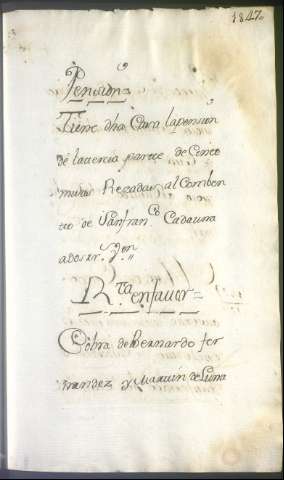 1847.
Pension=
Tiene dha Casa la pension
de la tercia parte de Cinco
misas Rezadas al Comben
to de Sanfran.co Cada una
a dos rr.s Von
R.ta en favor=
Cobra de Bernardo fer
nandez y Martin de Luna